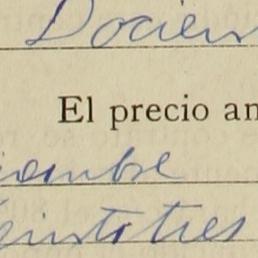 Docien
El precio an
eintitres